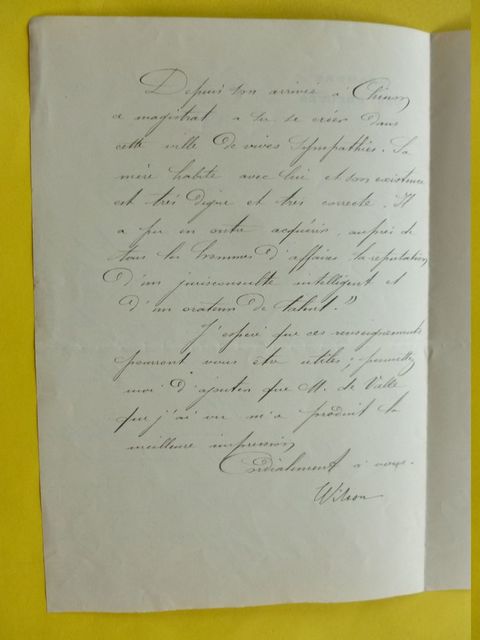 Depuis son arrivée à Chinon
ce magistrat a su se créer dans
cette ville de vives sympathies. Sa
mère habite avec lui et son existence
est très digne et très correcte. Il
a pu en outre acquérir, auprès de
tous les hommes d'affaires la réputation
d'un jurisconsulte intelligent et
d'un orateur de talent."
J'espère que ces renseignements
pourront vous être utiles; permettez
moi d'ajouter que M. de Valle
que j'ai vu m'a produit la
meilleure impression
Cordialement à vous.
Wilson